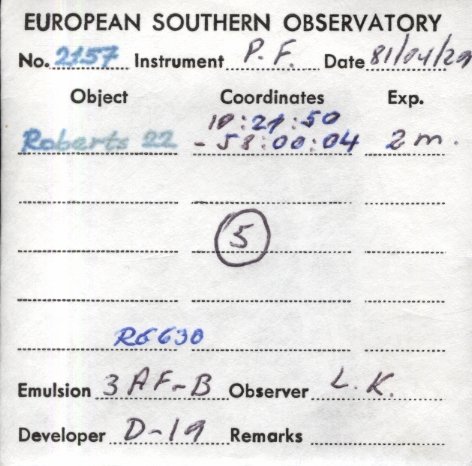 EUROPEAN SOUTHERN OBSERVATORY
No. 2157 Instrument P.F. Date 81/04/29
Object Coordinates Exp.
10:21:50
Roberts 22 -58:00:04 2m.
5
RG630
Emulsion 3AF-B Observer L.K.
Developer D-19 Remarks